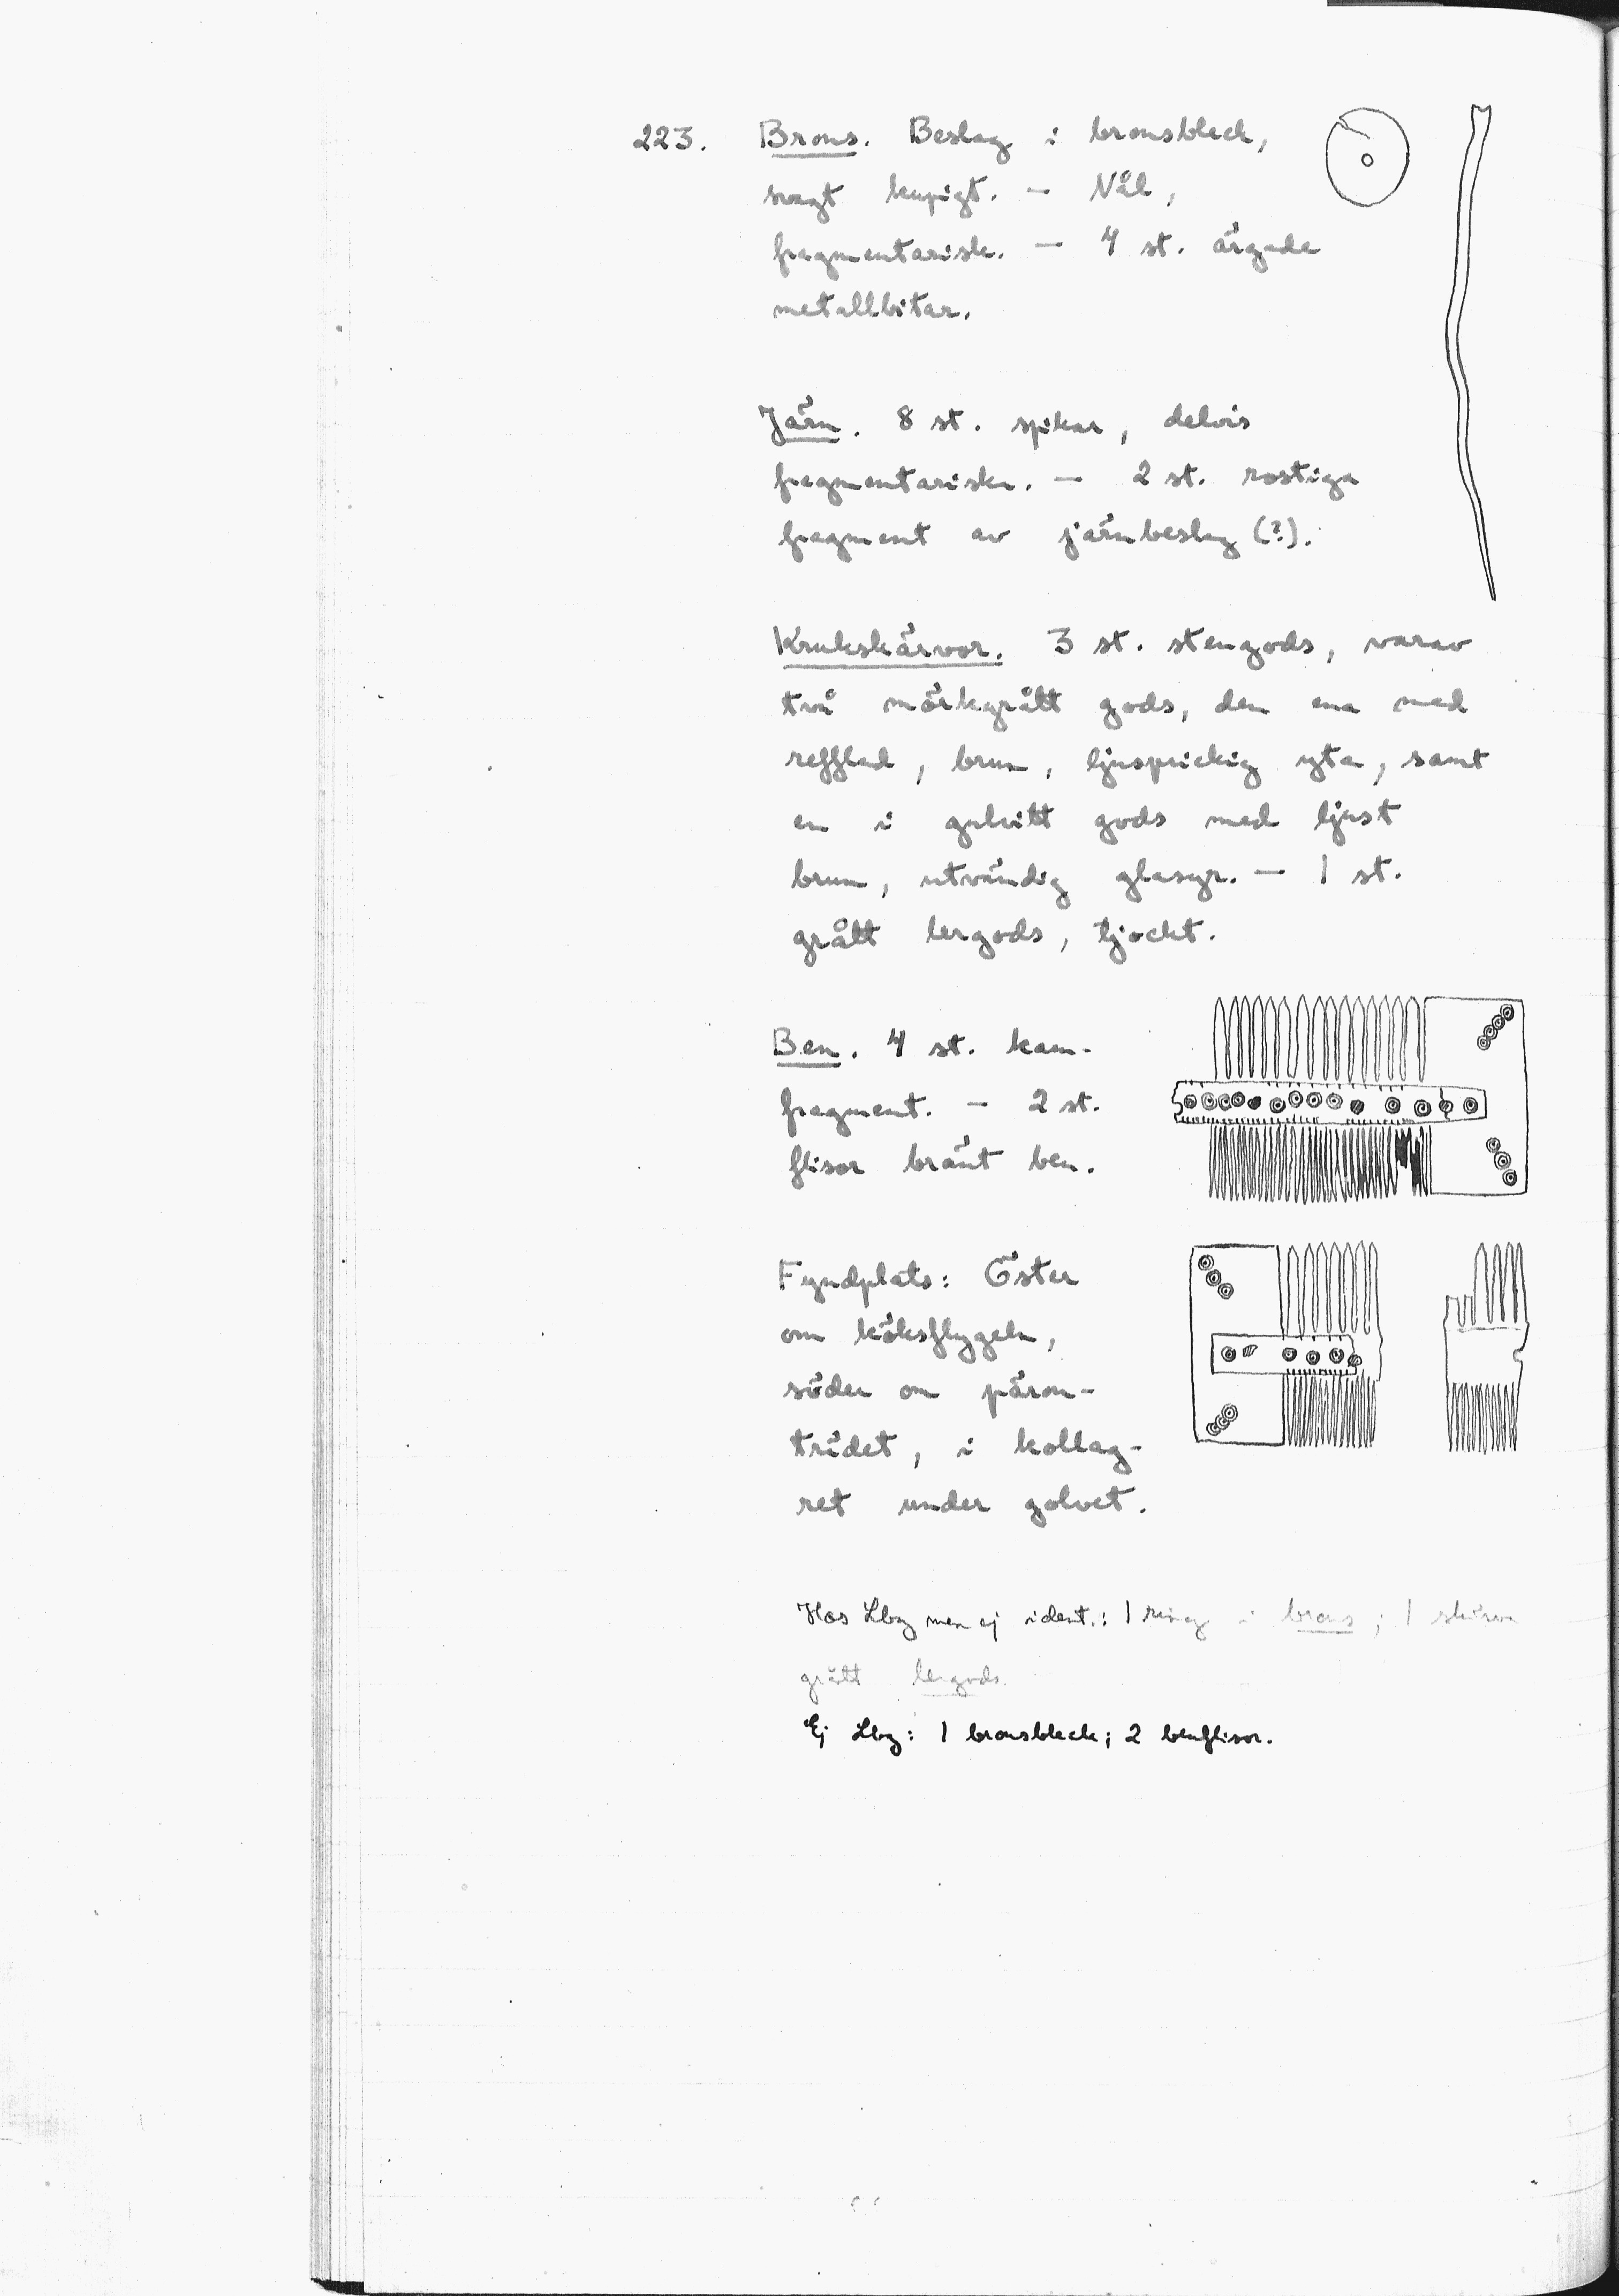 223. Brons. Beslag i bronsbleck,
svagt kupigt. — Nål,
fragmentarisk. — 4 st. ärgade
metallbitar.
Järn. 8 st. spikar, delvis
fragmentariska. — 2 st. rostiga
fragment av järnbeslag (?).
Krukskärvor. 3 st. stengods, varav
två mörkgrått gods, den ena med
refflad, brun, ljusprickig yta, samt
en i gulvitt gods med ljust
brun, utvändig glasyr. — 1 st.
grått lergods, tjockt.
Ben. 4 st. kam-
fragment. — 2 st.
flisor bränt ben.
Fyndplats: Öster
om köksflygeln,
söder om päron-
trädet, i kollag-
ret under golvet.
Hos Lbg men ej ident.: 1 ring i brons; 1 skärva
grått lergods.
Ej Lbg: 1 bronsbleck; 2 benflisor.